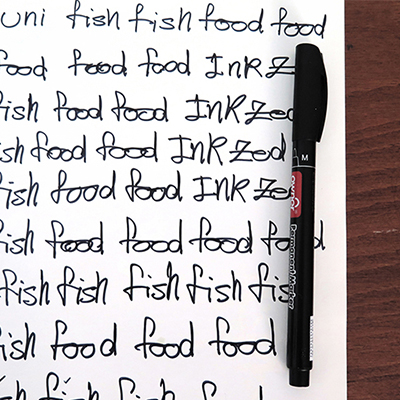 uni fish fish food food
food food food INK Ze
fish food food INK Zed
fish food food INK Zed
fish food food INK Ze
fish food food food food
fish fish fish fish fis
fish food food food
fish fish food food
M
Permanent Marker